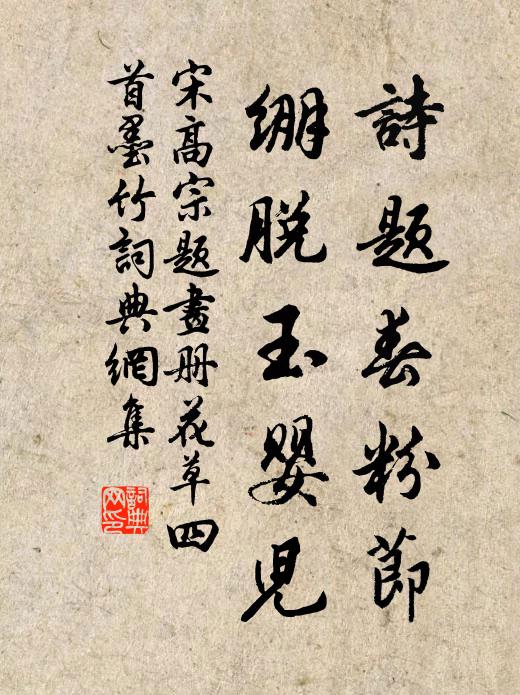 詩題春粉節
繃脫玉嬰児
宋高宗題畫册花草四
首墨竹詞典網集
詞典
网印